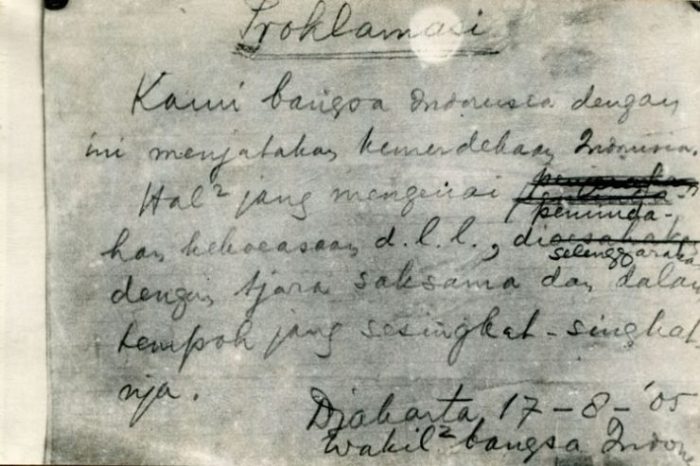 Proklamasi
Kami bangsa Indonesia dengan
ini menjatakan kemerdekaan Indonesia.
Hal² jang mengenai
peminda-
han kekoeasaan d.l.l., dioesahaka
selenggaraka
dengan tjara saksama dan dalam
tempoh jang sesingkat-singkat-
nja.
Djakarta 17-8-'05
Wakil² bangsa Indone